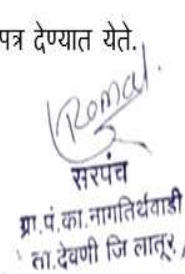 पत्र देण्यात येते.
सरपंच
ग्रा.पं.का.नागतिर्थवाडी
ता.देवणी जि लातूर,